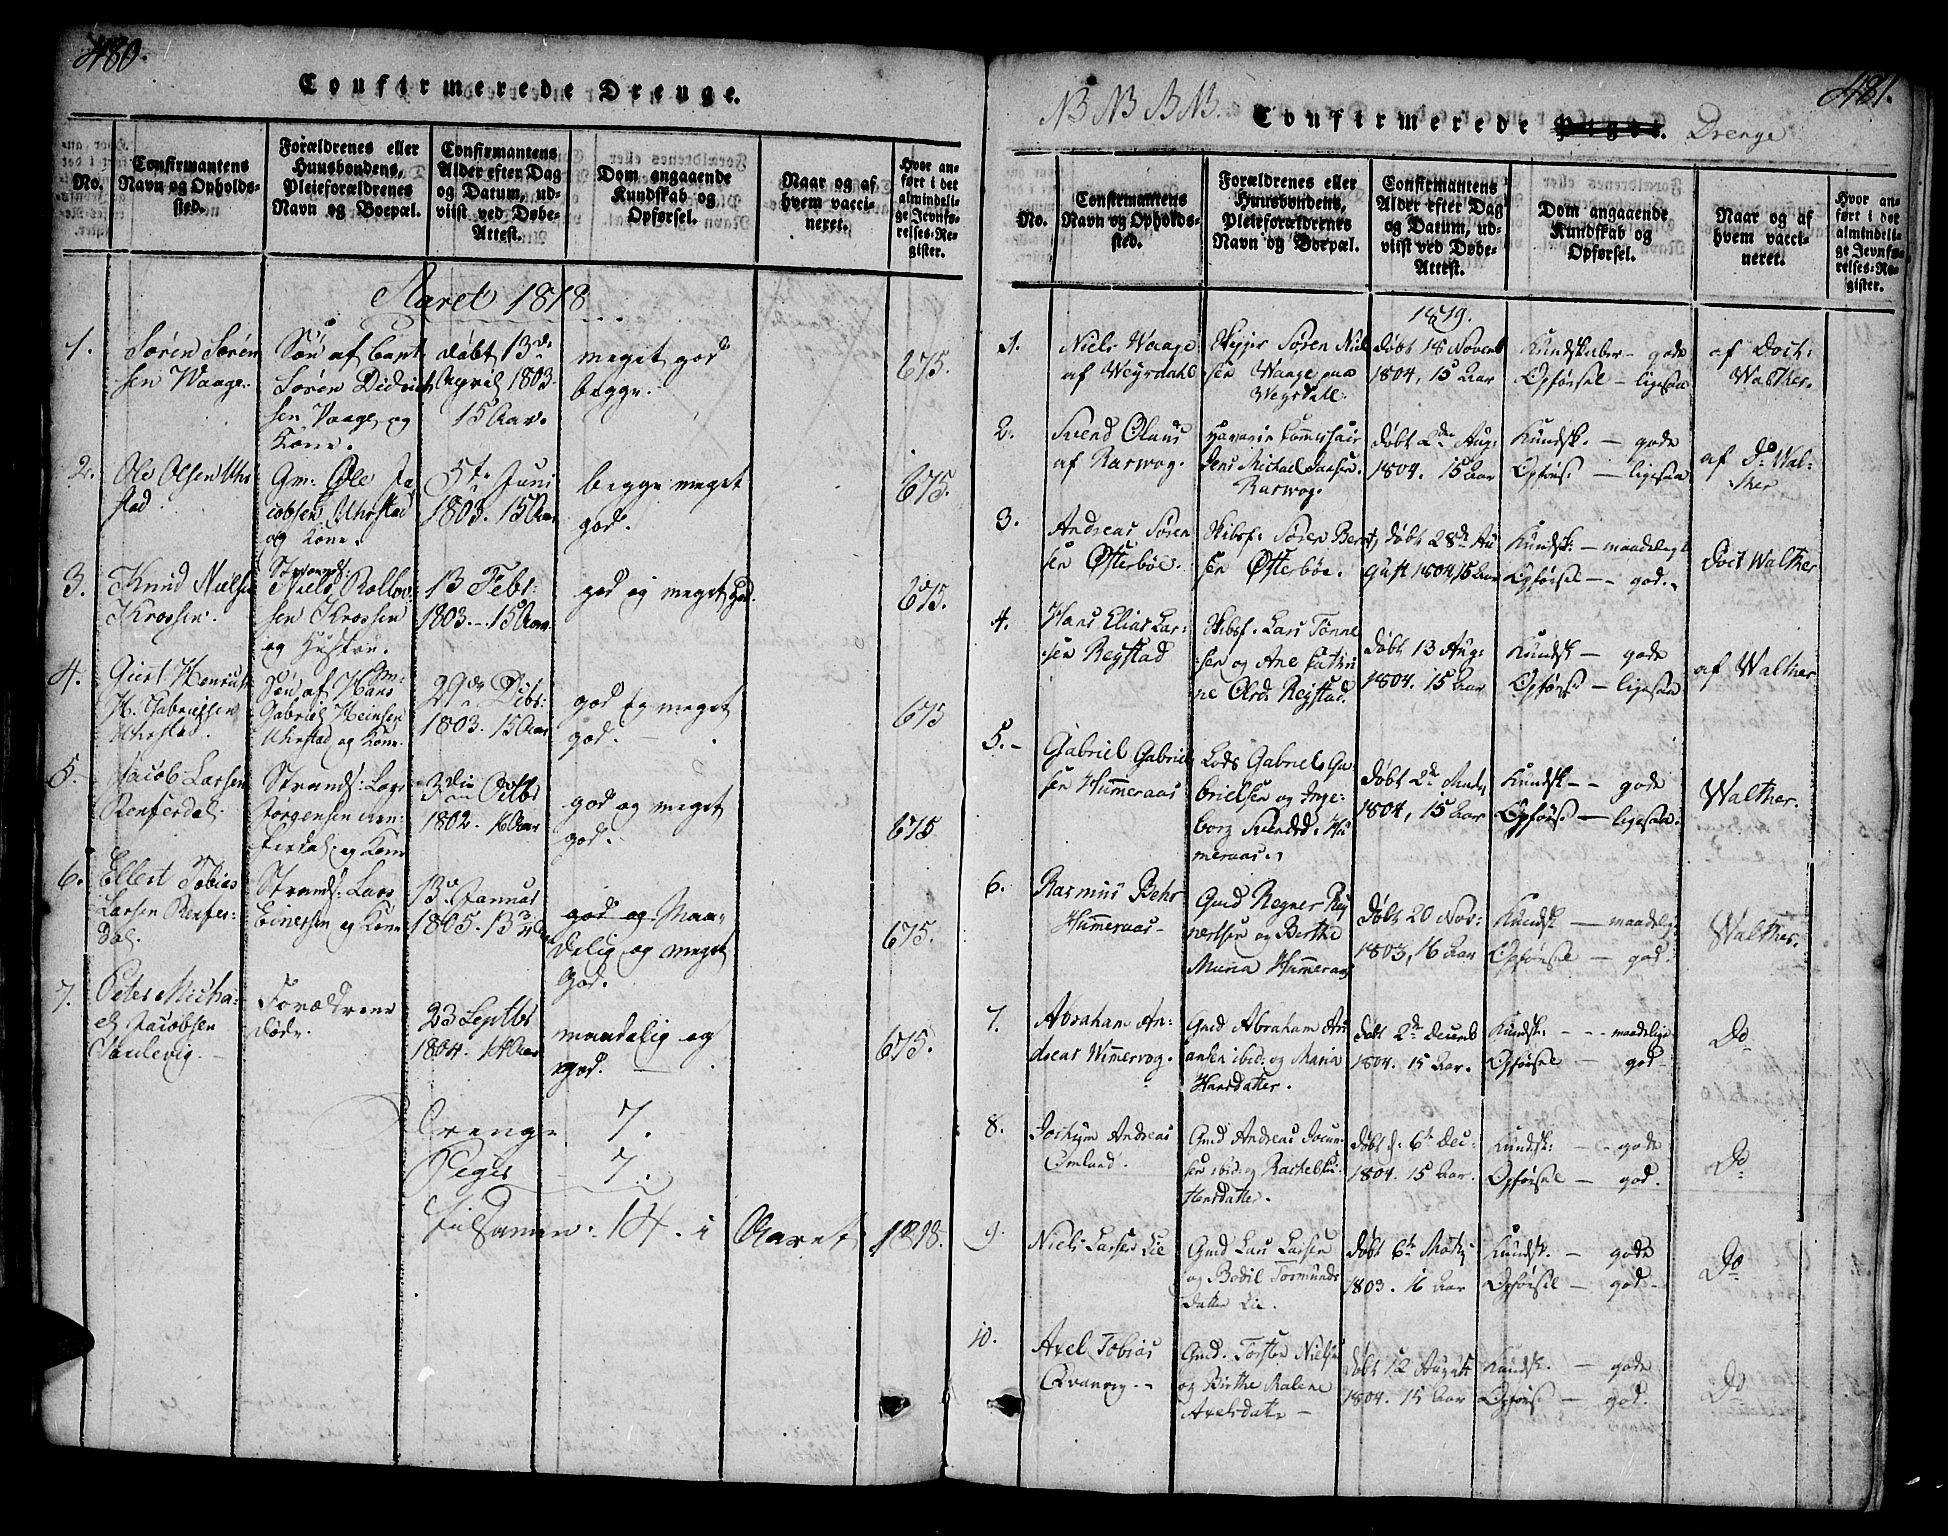 480.
Confirmerede Drenge.
No.
Confirmantens
Navn og Opholds-
sted.
Forældrenes eller
Huusbondens,
Pleieforældrenes
Navn og Boepæl.
Confirmantens
Alder efter Dag
og Datum, ud-
viist ved Døbe-
Attest.
Dom angaaende
Kundskab og
Opførsel.
Naar og af
hvem vacci-
neret.
Hvor an-
ført i det
almindeli-
ge Jevnfø-
relses-Re-
gister.
Aaret 1818
1.
Søren Søren
sen Vaage.
Søn af Capt
Søren Didrich
sen Vaage og
Kone.
døbt 13de
April 1803.
15 Aar.
meget god
begge.
675.
2.
Ole Olsen Uhr
stad.
Gm. Ole Ja
cobsen Uhrstad
og Kone.
5te Juni
1803. 15 Aar
begge meget
god.
675.
3.
Knud Niels
Krossen.
Strands:
Niels Rollov
sen Krossen
og Hustru.
13 Febr:
1803. - 15 Aar.
god og meget god.
675.
4.
Giert Henrich
H. Gabrielsen
Uhrstad.
Gm:
Søn af Hans
Gabriel Heinsen
Uhrstad og Kone.
29de Octbr:
1803. 15 Aar
god og meget
god.
675
5.
Jacob Larsen
Renferdal.
Strands: Lars
Jørgensen Ren-
ferdal og Kone
3die Octbr
1802. 16 Aar
god og meget
god.
675
6.
Ellert Tobias
Larsen Renfer-
dal.
Strands: Lars
Einersen og Kone
13de Januar
1805. 13
god og Maa-
delig og meget
God.
675.
7.
Peter Micha-
el Jacobsen
Paulevig.
Forældrene
døde.
23 Septbr
1804. 14 Aar
maadelig og
god.
675.
Drenge 7.
Piger - 7.
tilsamen: 14. i Aaret 1818.
481.
NB NB NB NB. Confirmerede Piger. Drenge
No.
Confirmantens
Navn og Opholds-
sted.
Forældrenes eller
Huusbondens,
Pleieforældrenes
Navn og Boepæl.
Confirmantens
Alder efter Dag
og Datum, ud-
viist ved Døbe-
Attest.
Dom angaaende
Kundskab og
Opførsel.
Naar og af
hvem vacci-
neret.
Hvor an-
ført i det
almindeli-
ge Jevnfø-
relses-Re-
gister.
1819.
1.
Niels Waage
af Weyrdahl
Skipper Søren Niel
sen Waage paa
Weysdall.
døbt 18 Novemb
1804, 15 Aar
Kundskaber - gode
Opførsel - ligesaa
af Doct:
Walther.
2.
Svend Olaus
af Rarwog.
Havarie Commissair
Jens Michael Saasen.
Rarwog.
døbt 2den Aug:
1804. 15 Aar
Kundsk. - gode
Opførs: - ligesaa
af Do Wal-
ther
3.
Andreas Søren
sen Østerbøe.
Skibsf: Søren Bernt
sen Østerbøe.
døbt 28de Au
gust 1804, 15 Aar
Kundsk: - maadelige
Opførsel - - god. -
Doct Walther
4.
Hans Elias Lar-
sen Reystad
Skibsf. Lars Tønne
sen og Ane Catri
ne Olsd. Reystad.
døbt 13 Aug:
1804. 15 Aar
Kundsk - gode
Opførs - ligesaa
af Walther
5. -
Gabriel Gabriel
sen Hummeraas
Lods Gabriel Ga
brielsen og Inge-
borg Svendsd: Hu
meraas.
døbt 2de
1804, 15 Aar
Kundsk - - gode
Opførs - ligesaa.
Walther.
6.
Rasmus Behr
Hummeraas -
Gmd Regner Reg
nertsen og Berthe
Maria Hummeraas
døbt 20 Nov:
1803, 16 Aar
Kundsk - maadelig
Opførsel - god.
Walther.
7.
Abraham An-
dreas Wimmervog.
Gmd Abraham An
ansen ibid: og Maria
Hansdatter.
døbt 2de Decemb
1804. 15 Aar.
Kundsk: - - - maadelige
Opførsel - god -
Do
8.
Jochum Andreas
Omland.
Gmd Andreas Jocum
sen ibid: og Rachel
Hansdatter.
døbt d. 6te Dec:
1804. 15 Aar.
Kundsk: - - gode
Opførsel - god.
Do
9.
Niels Larsen Lie
Gmd Lars Larsen
og Bodil Tormunds
datter Lie.
døbt 6te Martz
1803. 16 Aar
Kundsk. - gode
Opførsel - god -
Do
10.
Axel Tobias
Qvanvig. -
Gmd. Torsten Nielsen
og Birthe Malene
Axelsdatter -
døbt 12 August
1804. 15 Aar
Kundsk. - gode
Opførs - god.
Do